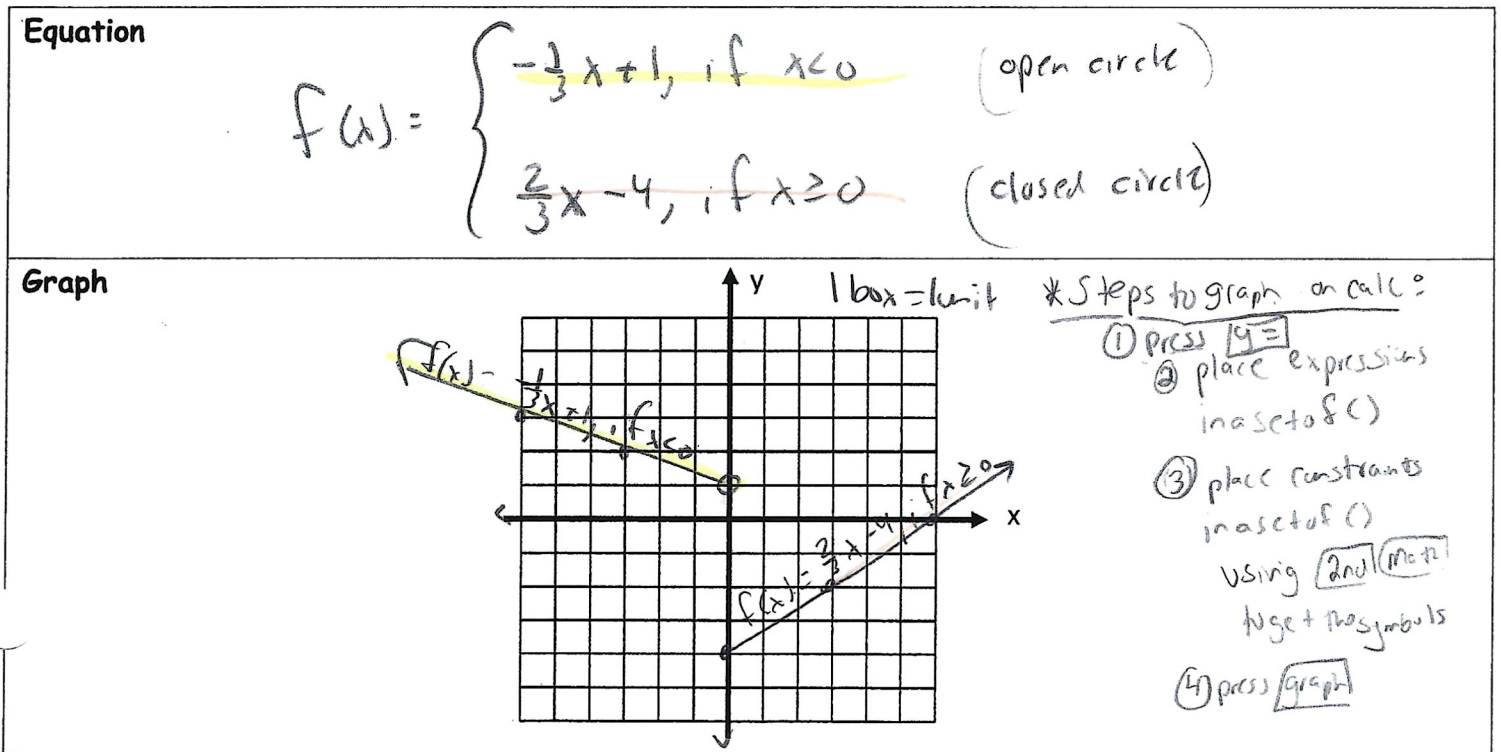 Equation
f(x) = { -1/3 x + 1, if x<0 (open circle)
2/3 x - 4, if x≥0 (closed circle)
Graph
y
1 box = 1unit
x
f(x) = -1/3 x + 1, if x<0
f(x) = 2/3 x - 4, if x≥0
*Steps to graph on calc:
① press y=
② place expressions
in a set of ( )
③ place constraints
in a set of ( )
using 2nd Math
to get the symbols
④ press graph